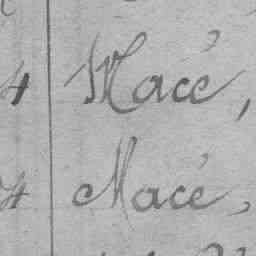 4 Macé,
4 Macé,